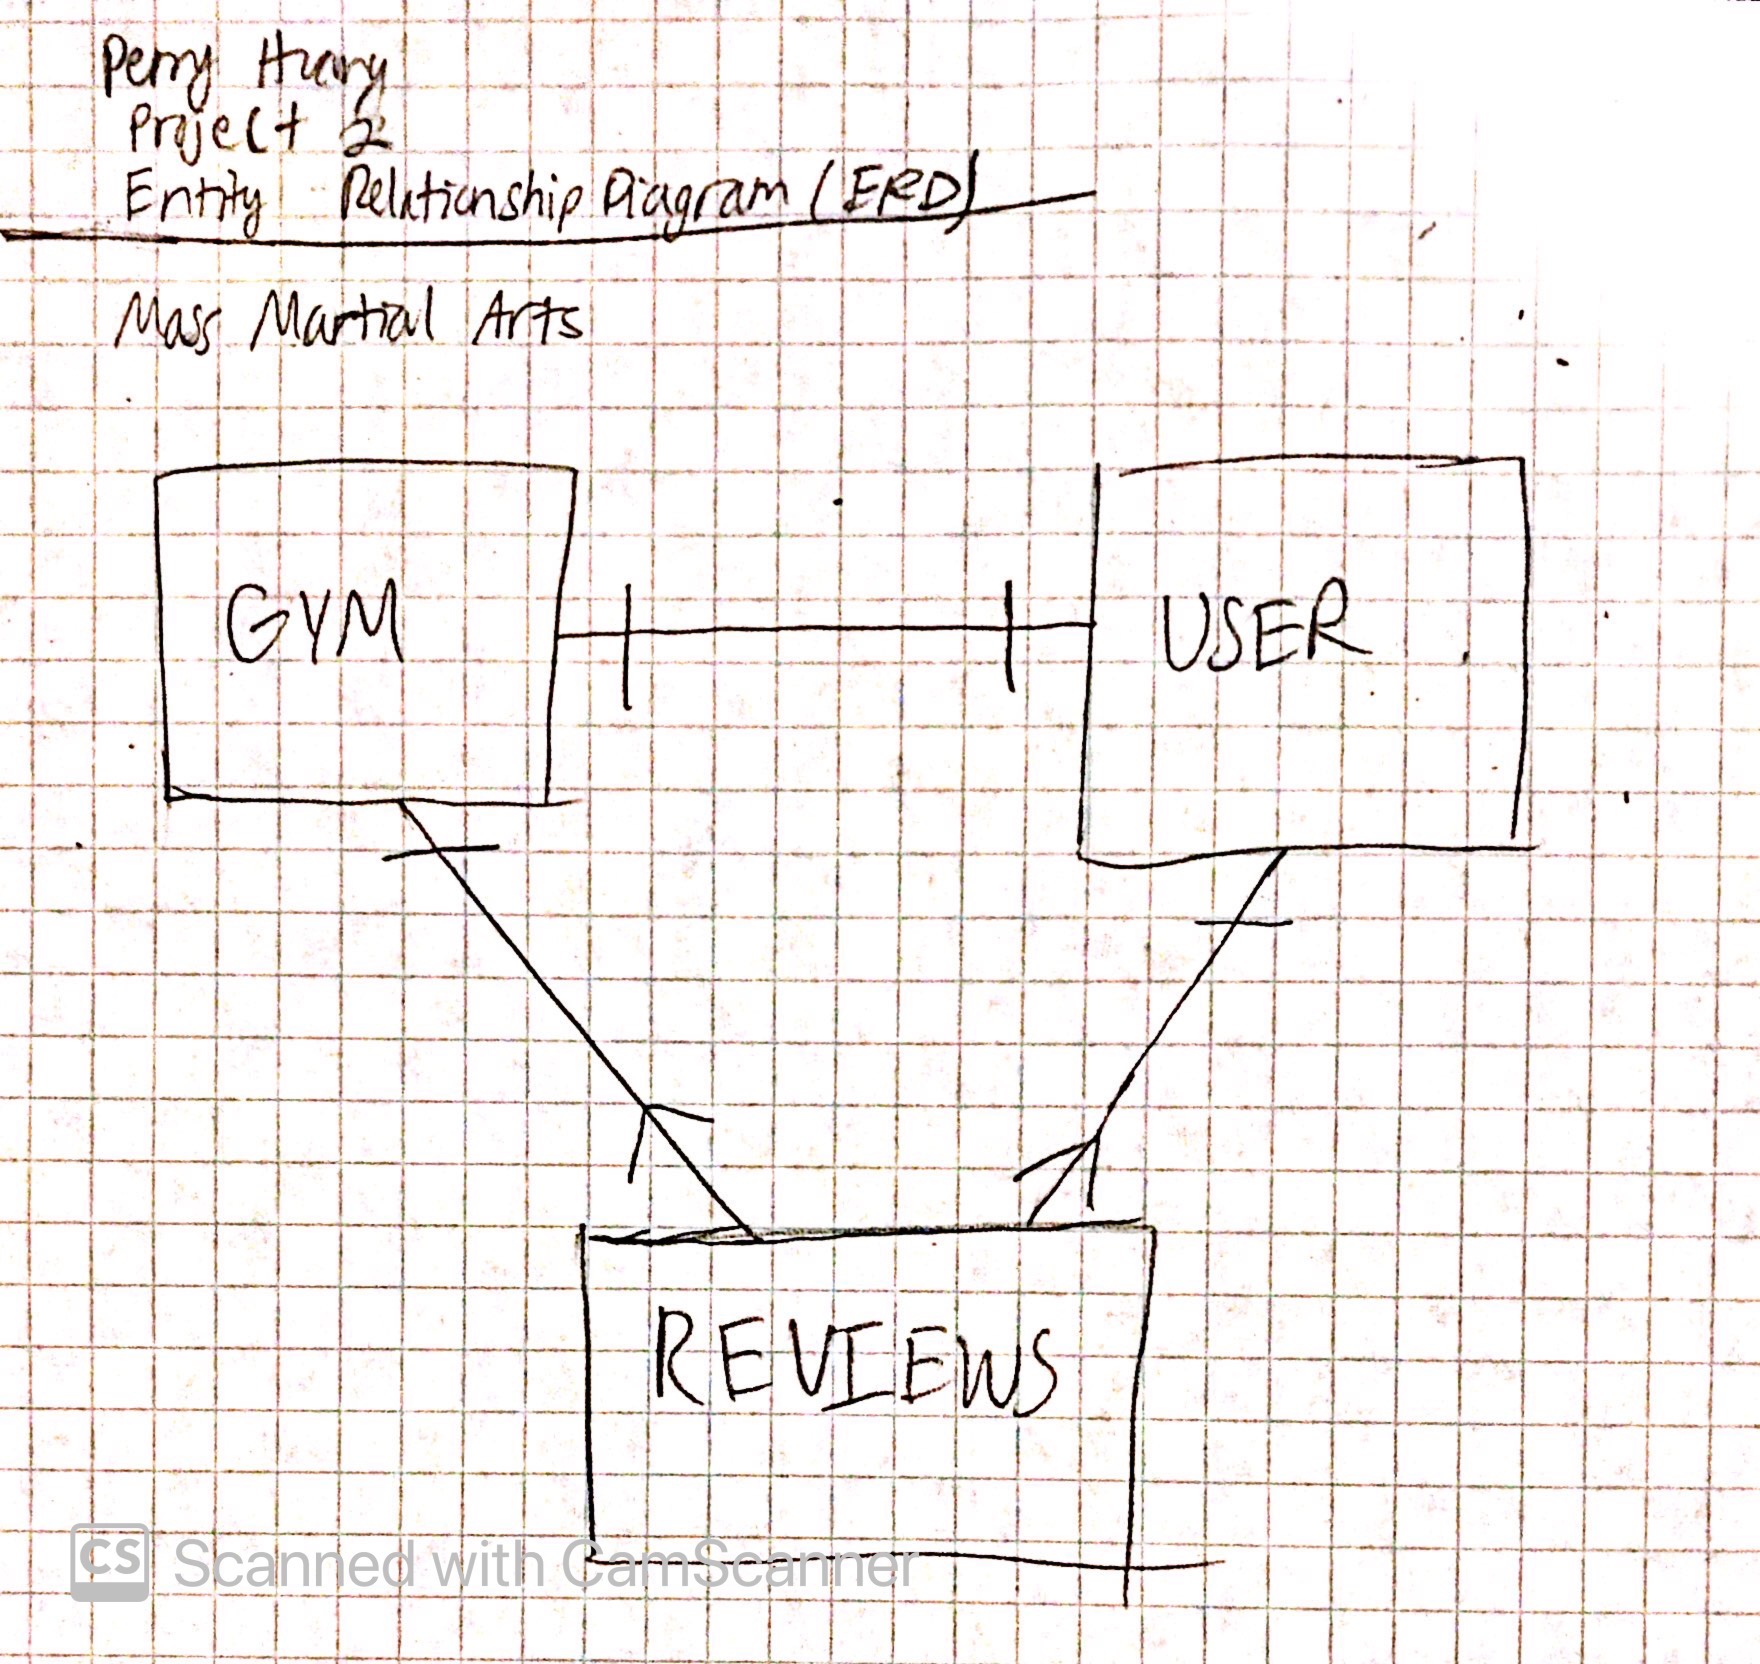 Perry Huang
Project 2
Entity Relationship Diagram (ERD)
Mass Martial Arts
GYM
USER
REVIEWS
CS Scanned with CamScanner